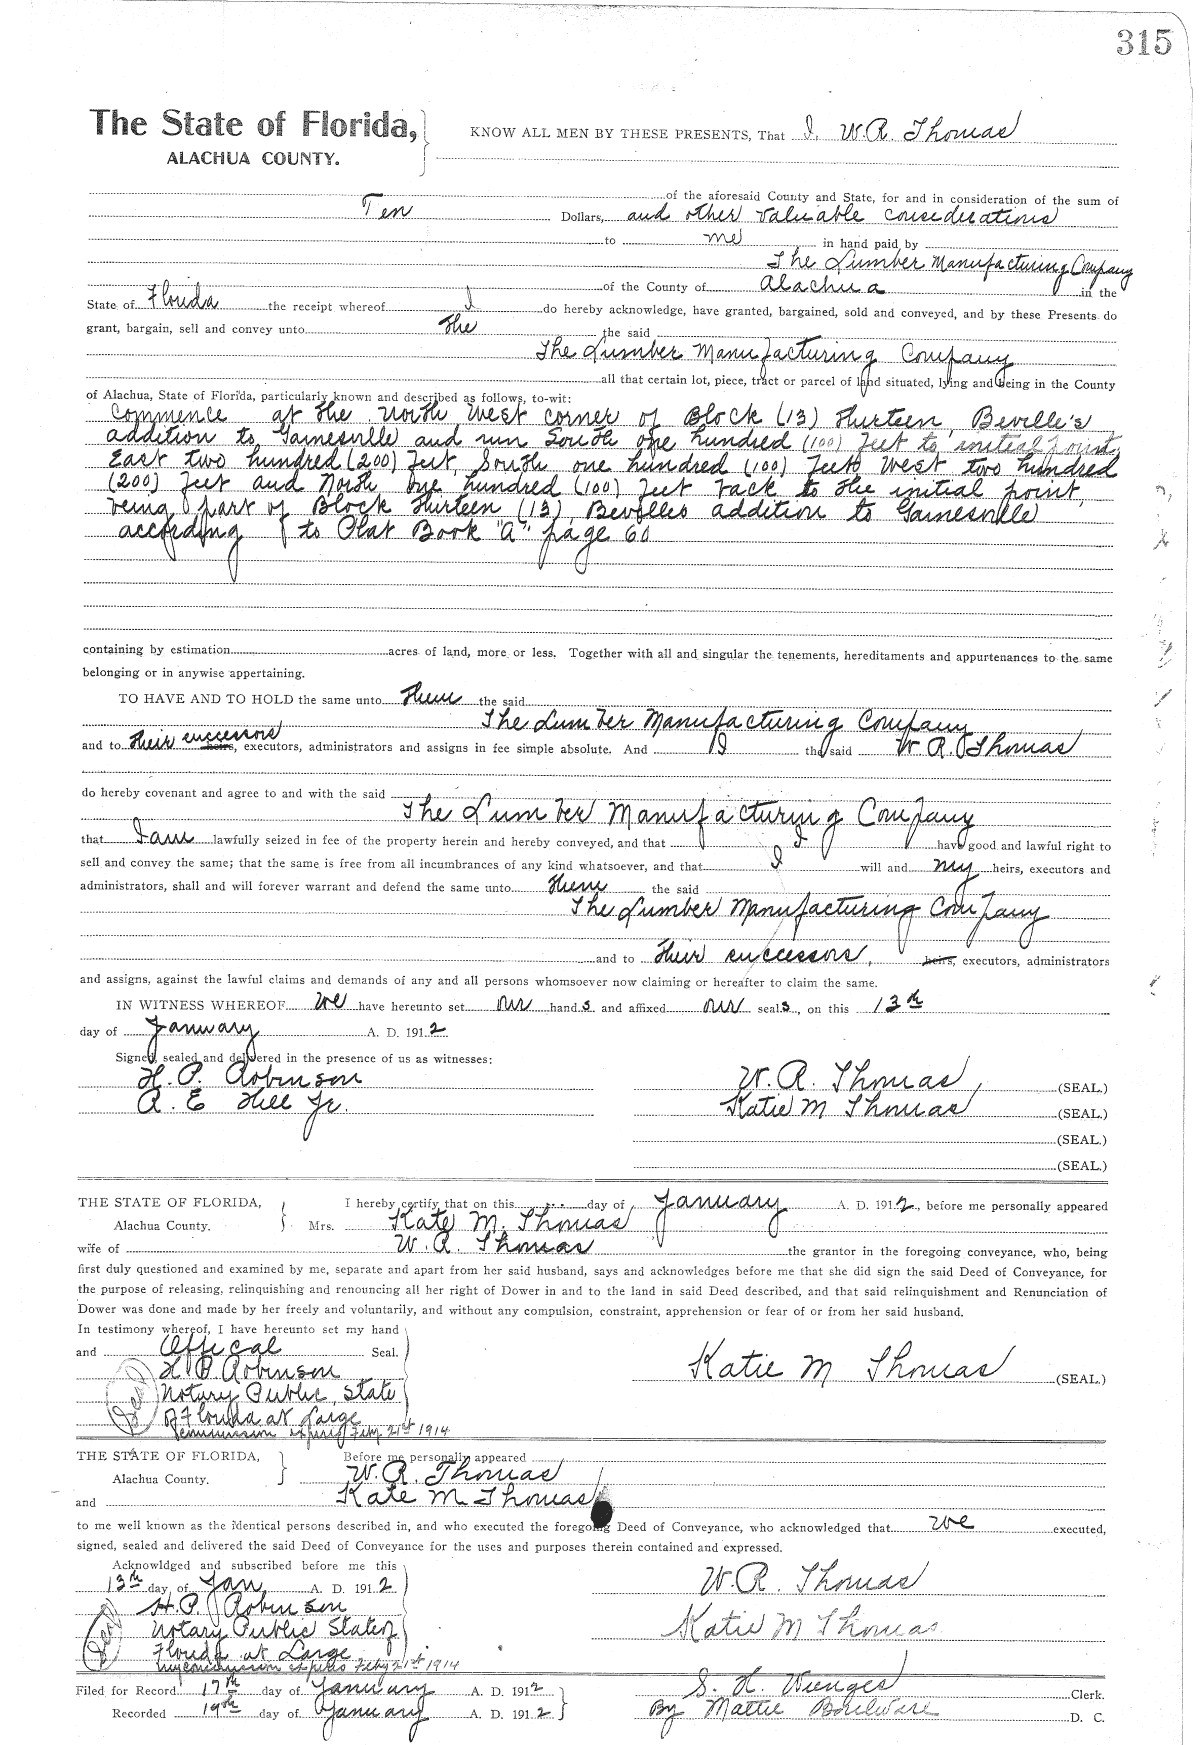 315
The State of Florida,
ALACHUA COUNTY.
KNOW ALL MEN BY THESE PRESENTS, That I, W.R. Thomas
of the aforesaid County and State, for and in consideration of the sum of
Ten Dollars, and other valuable considerations
to me in hand paid by
The Lumber Manufacturing Company
of the County of Alachua in the
State of Florida the receipt whereof I do hereby acknowledge, have granted, bargained, sold and conveyed, and by these Presents do
grant, bargain, sell and convey unto the the said
The Lumber Manufacturing Company
all that certain lot, piece, tract or parcel of land situated, lying and being in the County
of Alachua, State of Florida, particularly known and described as follows, to-wit:
Commence at the North West corner of Block (13) Thirteen, Beville's
addition to Gainesville and run South one hundred (100) feet to initial point,
East two hundred (200) feet, South one hundred (100) feet West two hundred
(200) feet and North one hundred (100) feet back to the initial point,
being part of Block Thirteen (13) Bevilles addition to Gainesville
according to Plat Book "A" page 60
containing by estimation acres of land, more or less. Together with all and singular the tenements, hereditaments and appurtenances to the same
belonging or in anywise appertaining.
TO HAVE AND TO HOLD the same unto them the said
The Lumber Manufacturing Company
and to their successors heirs, executors, administrators and assigns in fee simple absolute. And I the said W R. Thomas
do hereby covenant and agree to and with the said
The Lumber Manufacturing Company
that I am lawfully seized in fee of the property herein and hereby conveyed, and that I have good and lawful right to
sell and convey the same; that the same is free from all incumbrances of any kind whatsoever, and that I will and my heirs, executors and
administrators, shall and will forever warrant and defend the same unto them the said
The Lumber Manufacturing Company
and to their successors, heirs, executors, administrators
and assigns, against the lawful claims and demands of any and all persons whomsoever now claiming or hereafter to claim the same.
IN WITNESS WHEREOF we have hereunto set our hands and affixed our seals, on this 13th
day of January A. D. 1912
Signed, sealed and delivered in the presence of us as witnesses:
H. P. Robinson
W. R. Thomas, (SEAL.)
A. E Hill Jr.
Katie M Thomas (SEAL.)
(SEAL.)
(SEAL.)
THE STATE OF FLORIDA,
Alachua County.
I hereby certify that on this day of January A. D. 1912, before me personally appeared
Mrs. Kate M. Thomas
wife of W. R. Thomas the grantor in the foregoing conveyance, who, being
first duly questioned and examined by me, separate and apart from her said husband, says and acknowledges before me that she did sign the said Deed of Conveyance, for
the purpose of releasing, relinquishing and renouncing all her right of Dower in and to the land in said Deed described, and that said relinquishment and Renunciation of
Dower was done and made by her freely and voluntarily, and without any compulsion, constraint, apprehension or fear of or from her said husband.
In testimony whereof, I have hereunto set my hand
and Offical Seal.
H P Robinson
Katie M Thomas (SEAL.)
Seal
Notary Public, State
of Florida at Large
Commission expires Feby 21st 1914
THE STATE OF FLORIDA,
Alachua County.
Before me personally appeared
W. R. Thomas
and Kate M Thomas
to me well known as the identical persons described in, and who executed the foregoing Deed of Conveyance, who acknowledged that we executed,
signed, sealed and delivered the said Deed of Conveyance for the uses and purposes therein contained and expressed.
Acknowldged and subscribed before me this
13th day of Jan. A. D. 1912
W. R. Thomas
H. P. Robinson
Katie M Thomas
Seal
Notary Public State of
Florida at Large
My commission expires Feby 21st 1914
Filed for Record 17th day of January A. D. 1912
S. H. Wienges Clerk.
Recorded 19th day of January A. D. 1912
By Mattie Boulware D. C.